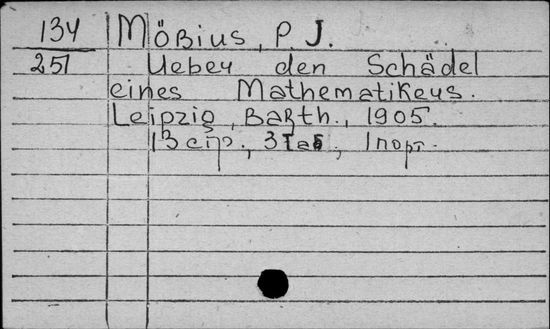 134 Möbius, P. J.
251 Ueber den Schädel
eines Mathematikers.
Leipzig, Barth., 1905.
13 стр., 3 таб., 1 порт.